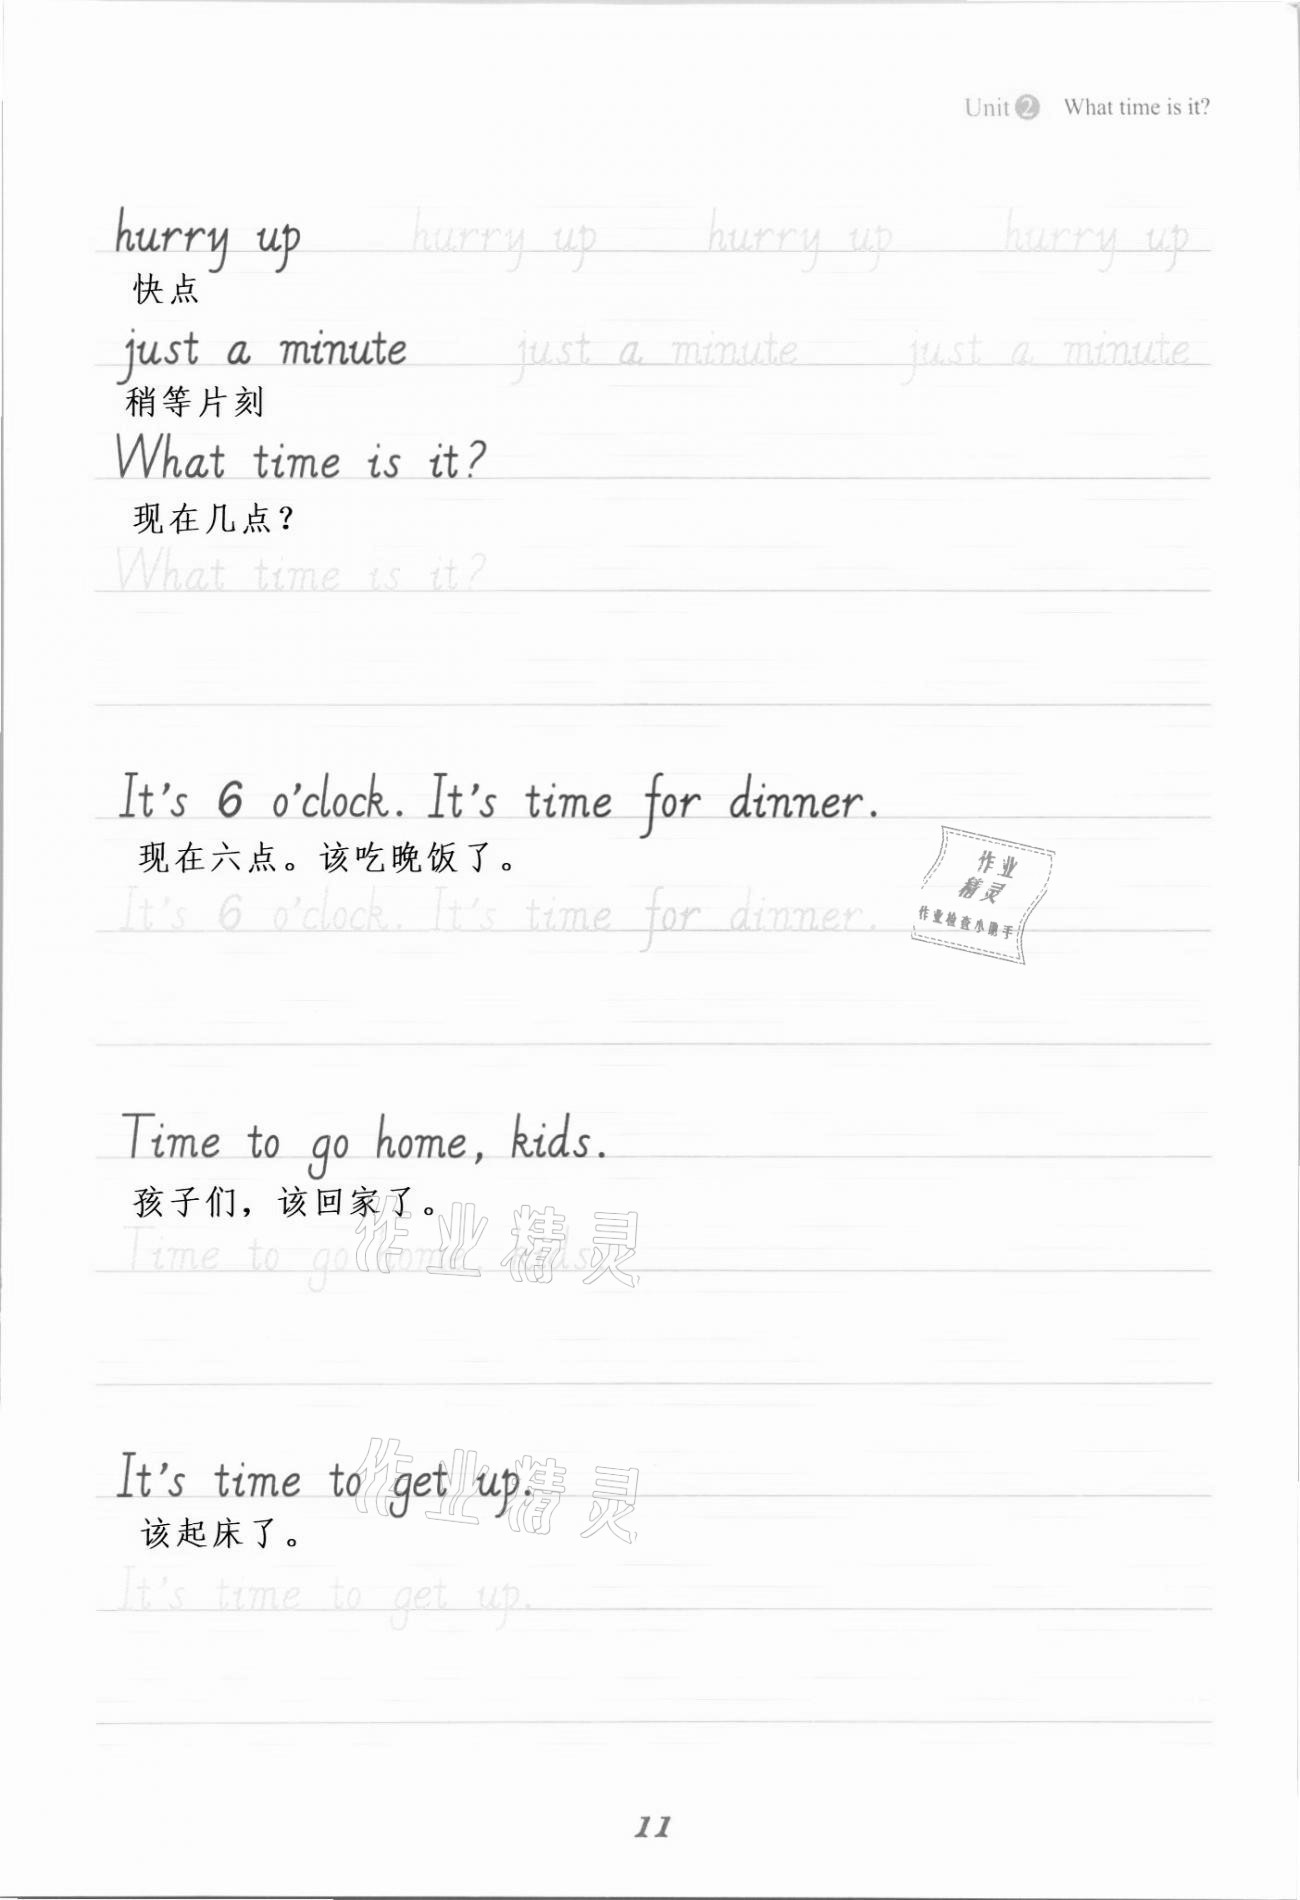 Unit 2 What time is it?
hurry up hurry up hurry up hurry up
快点
just a minute just a minute just a minute
稍等片刻
What time is it?
现在几点？
What time is it?
It's 6 o'clock. It's time for dinner.
现在六点。该吃晚饭了。
It's 6 o'clock. It's time for dinner.
作业
精灵
作业检查小助手
Time to go home, kids.
孩子们，该回家了。
作业精灵
Time to go home, kids.
It's time to get up.
作业精灵
该起床了。
It's time to get up.
11